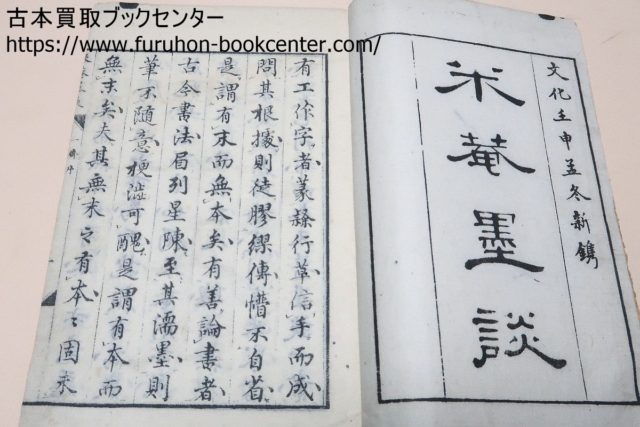 古本買取ブックセンター
https://www.furuhon-bookcenter.com/
文化壬申孟冬新鐫
米菴墨談
有工作字者篆隷行草信手而成
問其根據則徒膠繆傳懵不自省
是謂有末而無本矣有善論書者
古今書法局列星陳至其濡墨則
筆不隨意梗澁可醜是謂有本而
無末矣夫其無末之有本〻固末